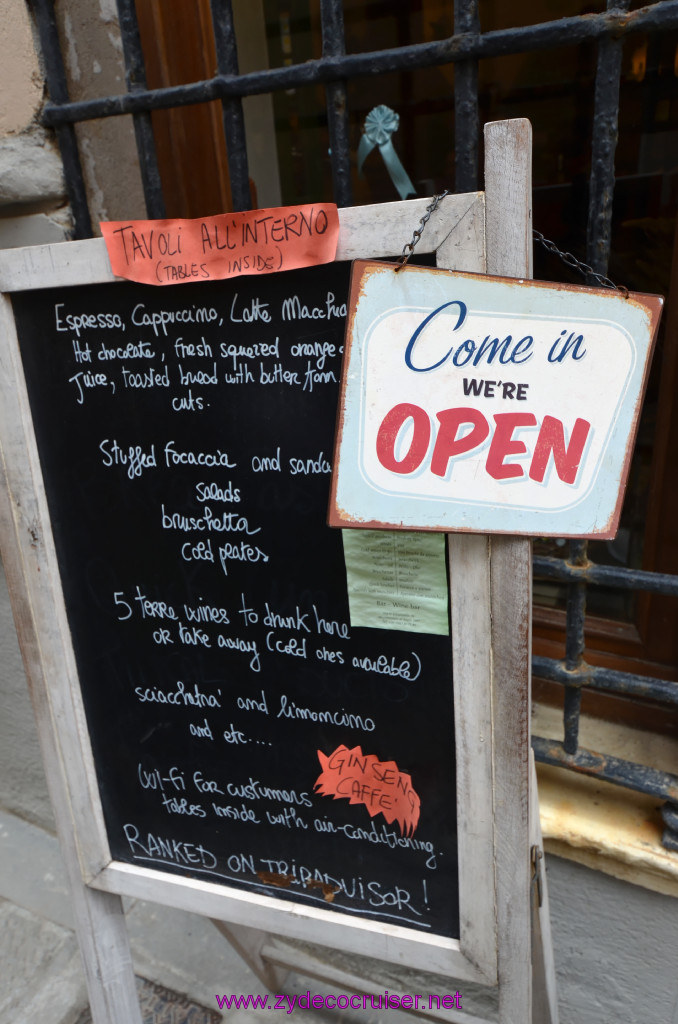 TAVOLI ALL'INTERNO
(TABLES INSIDE)
Espresso, Cappuccino, Latte
Hot chocolate, fresh squezed orange
Juice, toasted bread with butter
cuts.
Stuffed focaccia and
salads
bruschetta
cold plates
5 terre wines to drunk here
or take away (cold ones available)
sciacchetra' and limoncino
and etc....
GINSENG
CAFFE'
Wi-fi for custumers
tables inside with air-conditioning.
RANKED ON TRIPADVISOR!
Come in
WE'RE
OPEN
www.zydecocruiser.net